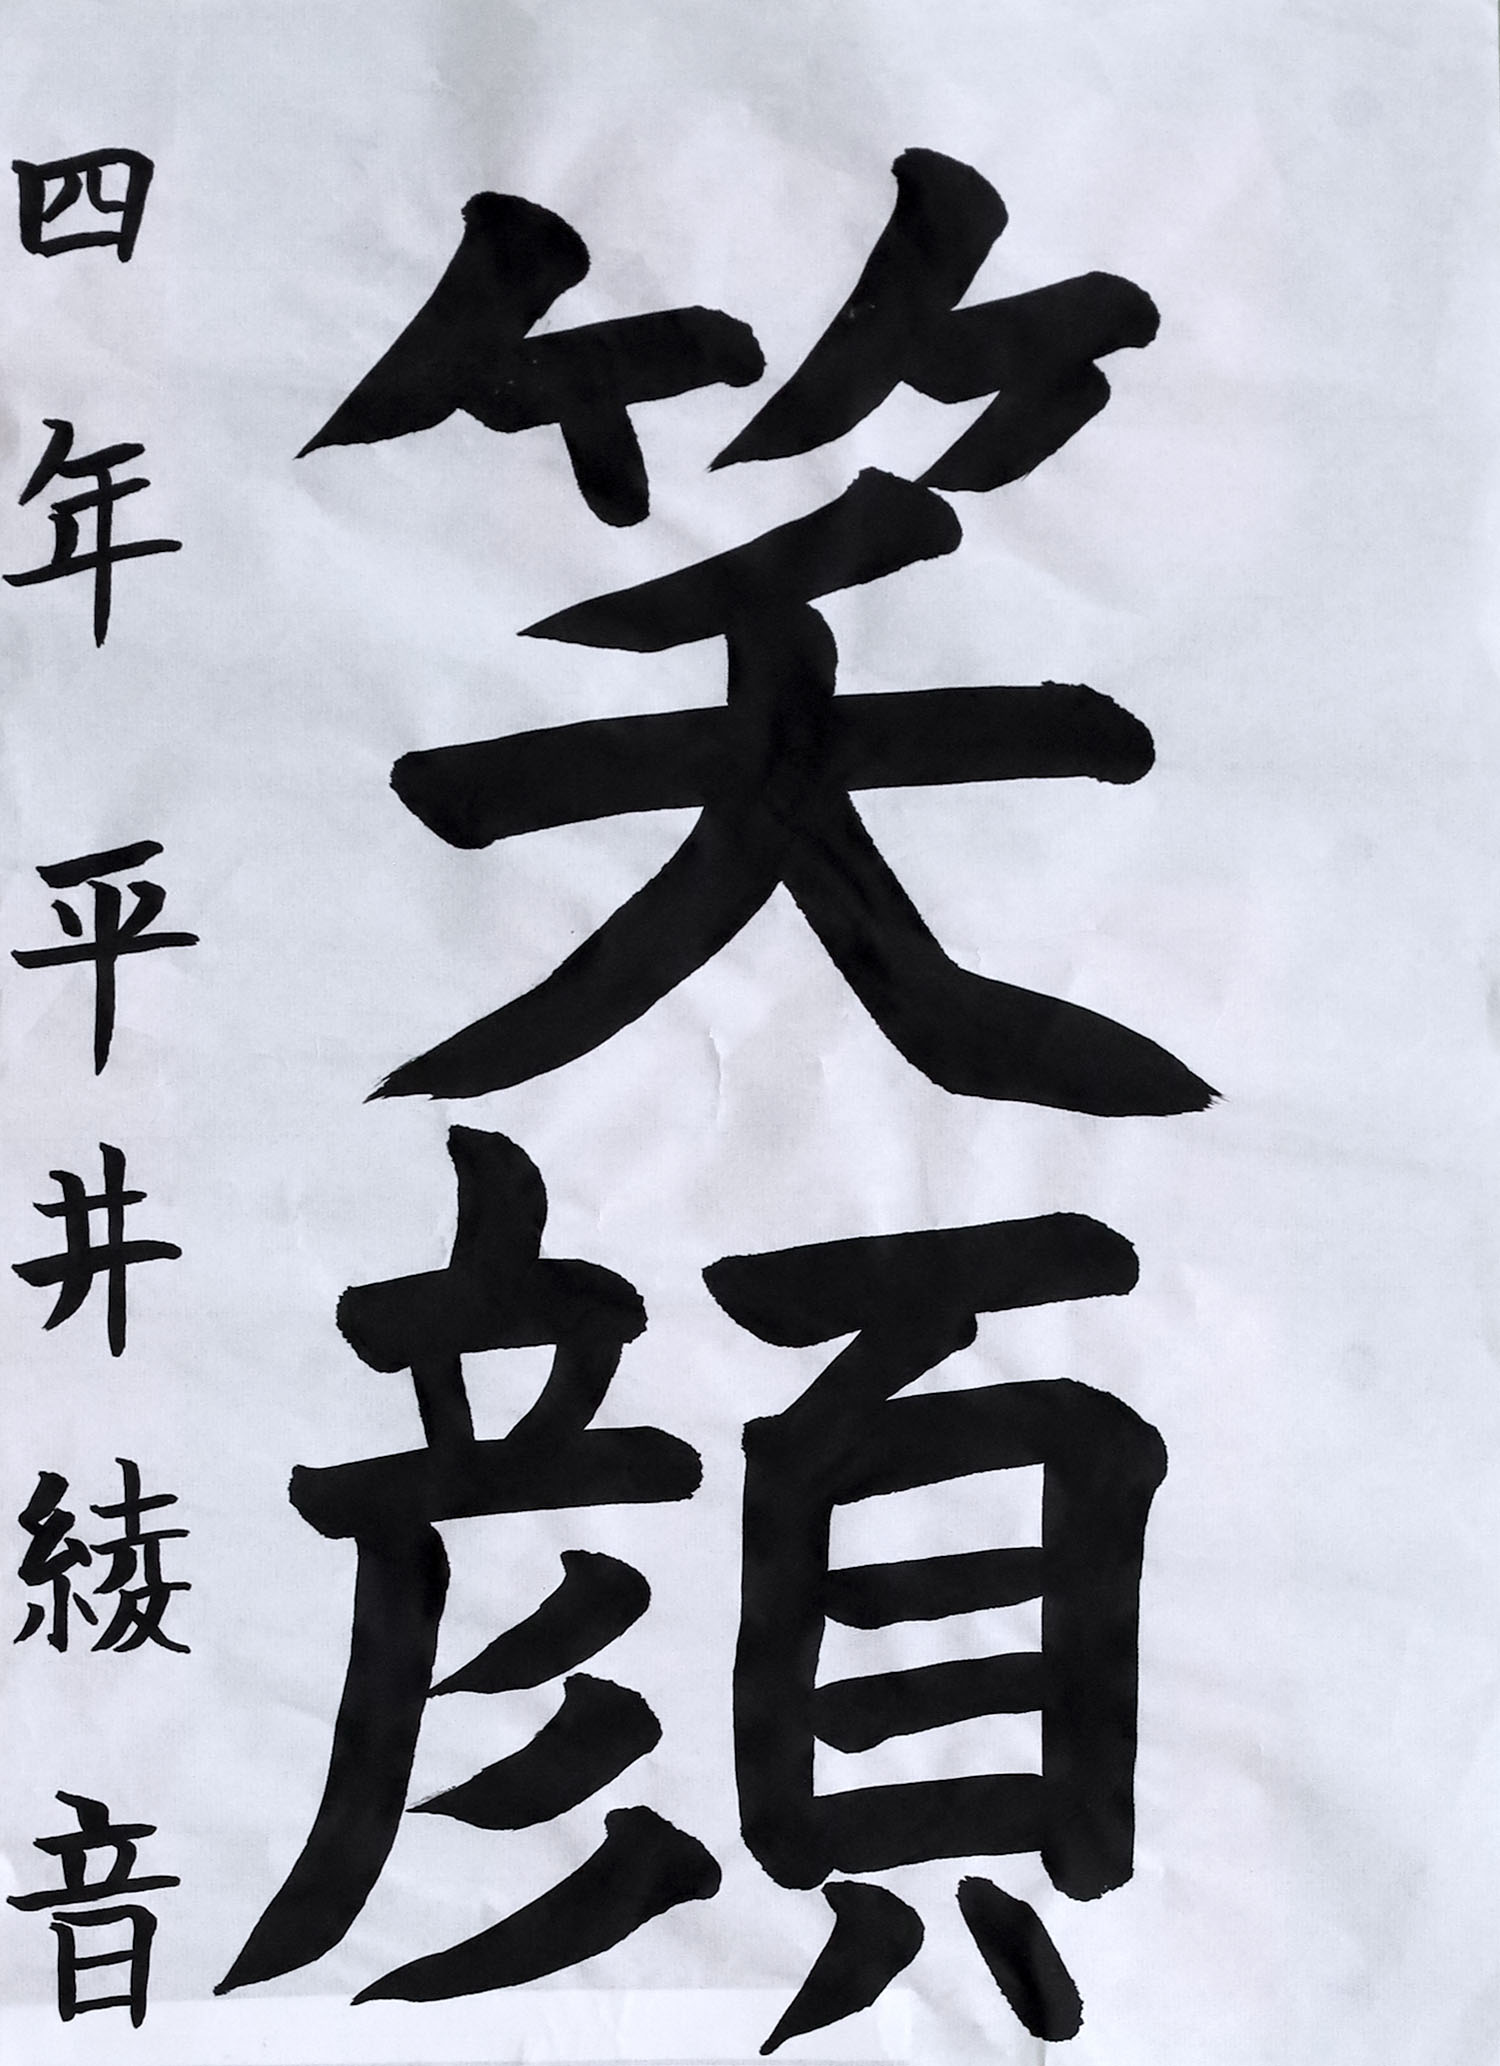 笑顔
四年 平井綾音